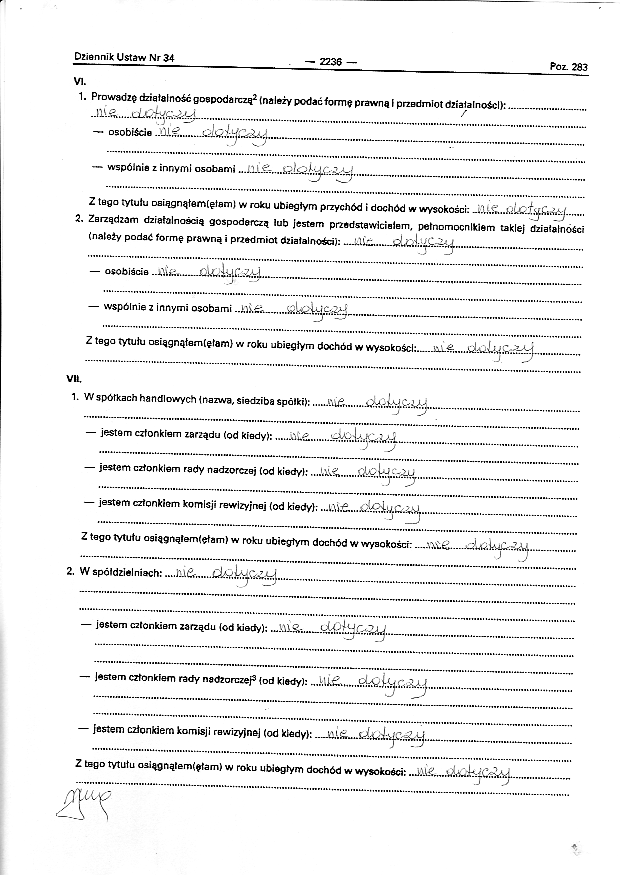 Dziennik Ustaw Nr 34 — 2236 — Poz. 283
VI.
1. Prowadzę działalność gospodarczą² (należy podać formę prawną i przedmiot działalności):
nie dotyczy
— osobiście nie dotyczy
— wspólnie z innymi osobami nie dotyczy
Z tego tytułu osiągnąłem(ęłam) w roku ubiegłym przychód i dochód w wysokości: nie dotyczy
2. Zarządzam działalnością gospodarczą lub jestem przedstawicielem, pełnomocnikiem takiej działalności
(należy podać formę prawną i przedmiot działalności): nie dotyczy
— osobiście nie dotyczy
— wspólnie z innymi osobami nie dotyczy
Z tego tytułu osiągnąłem(ęłam) w roku ubiegłym dochód w wysokości: nie dotyczy
VII.
1. W spółkach handlowych (nazwa, siedziba spółki): nie dotyczy
— jestem członkiem zarządu (od kiedy): nie dotyczy
— jestem członkiem rady nadzorczej (od kiedy): nie dotyczy
— jestem członkiem komisji rewizyjnej (od kiedy): nie dotyczy
Z tego tytułu osiągnąłem(ęłam) w roku ubiegłym dochód w wysokości: nie dotyczy
2. W spółdzielniach: nie dotyczy
— jestem członkiem zarządu (od kiedy): nie dotyczy
— jestem członkiem rady nadzorczej³ (od kiedy): nie dotyczy
— jestem członkiem komisji rewizyjnej (od kiedy): nie dotyczy
Z tego tytułu osiągnąłem(ęłam) w roku ubiegłym dochód w wysokości: nie dotyczy